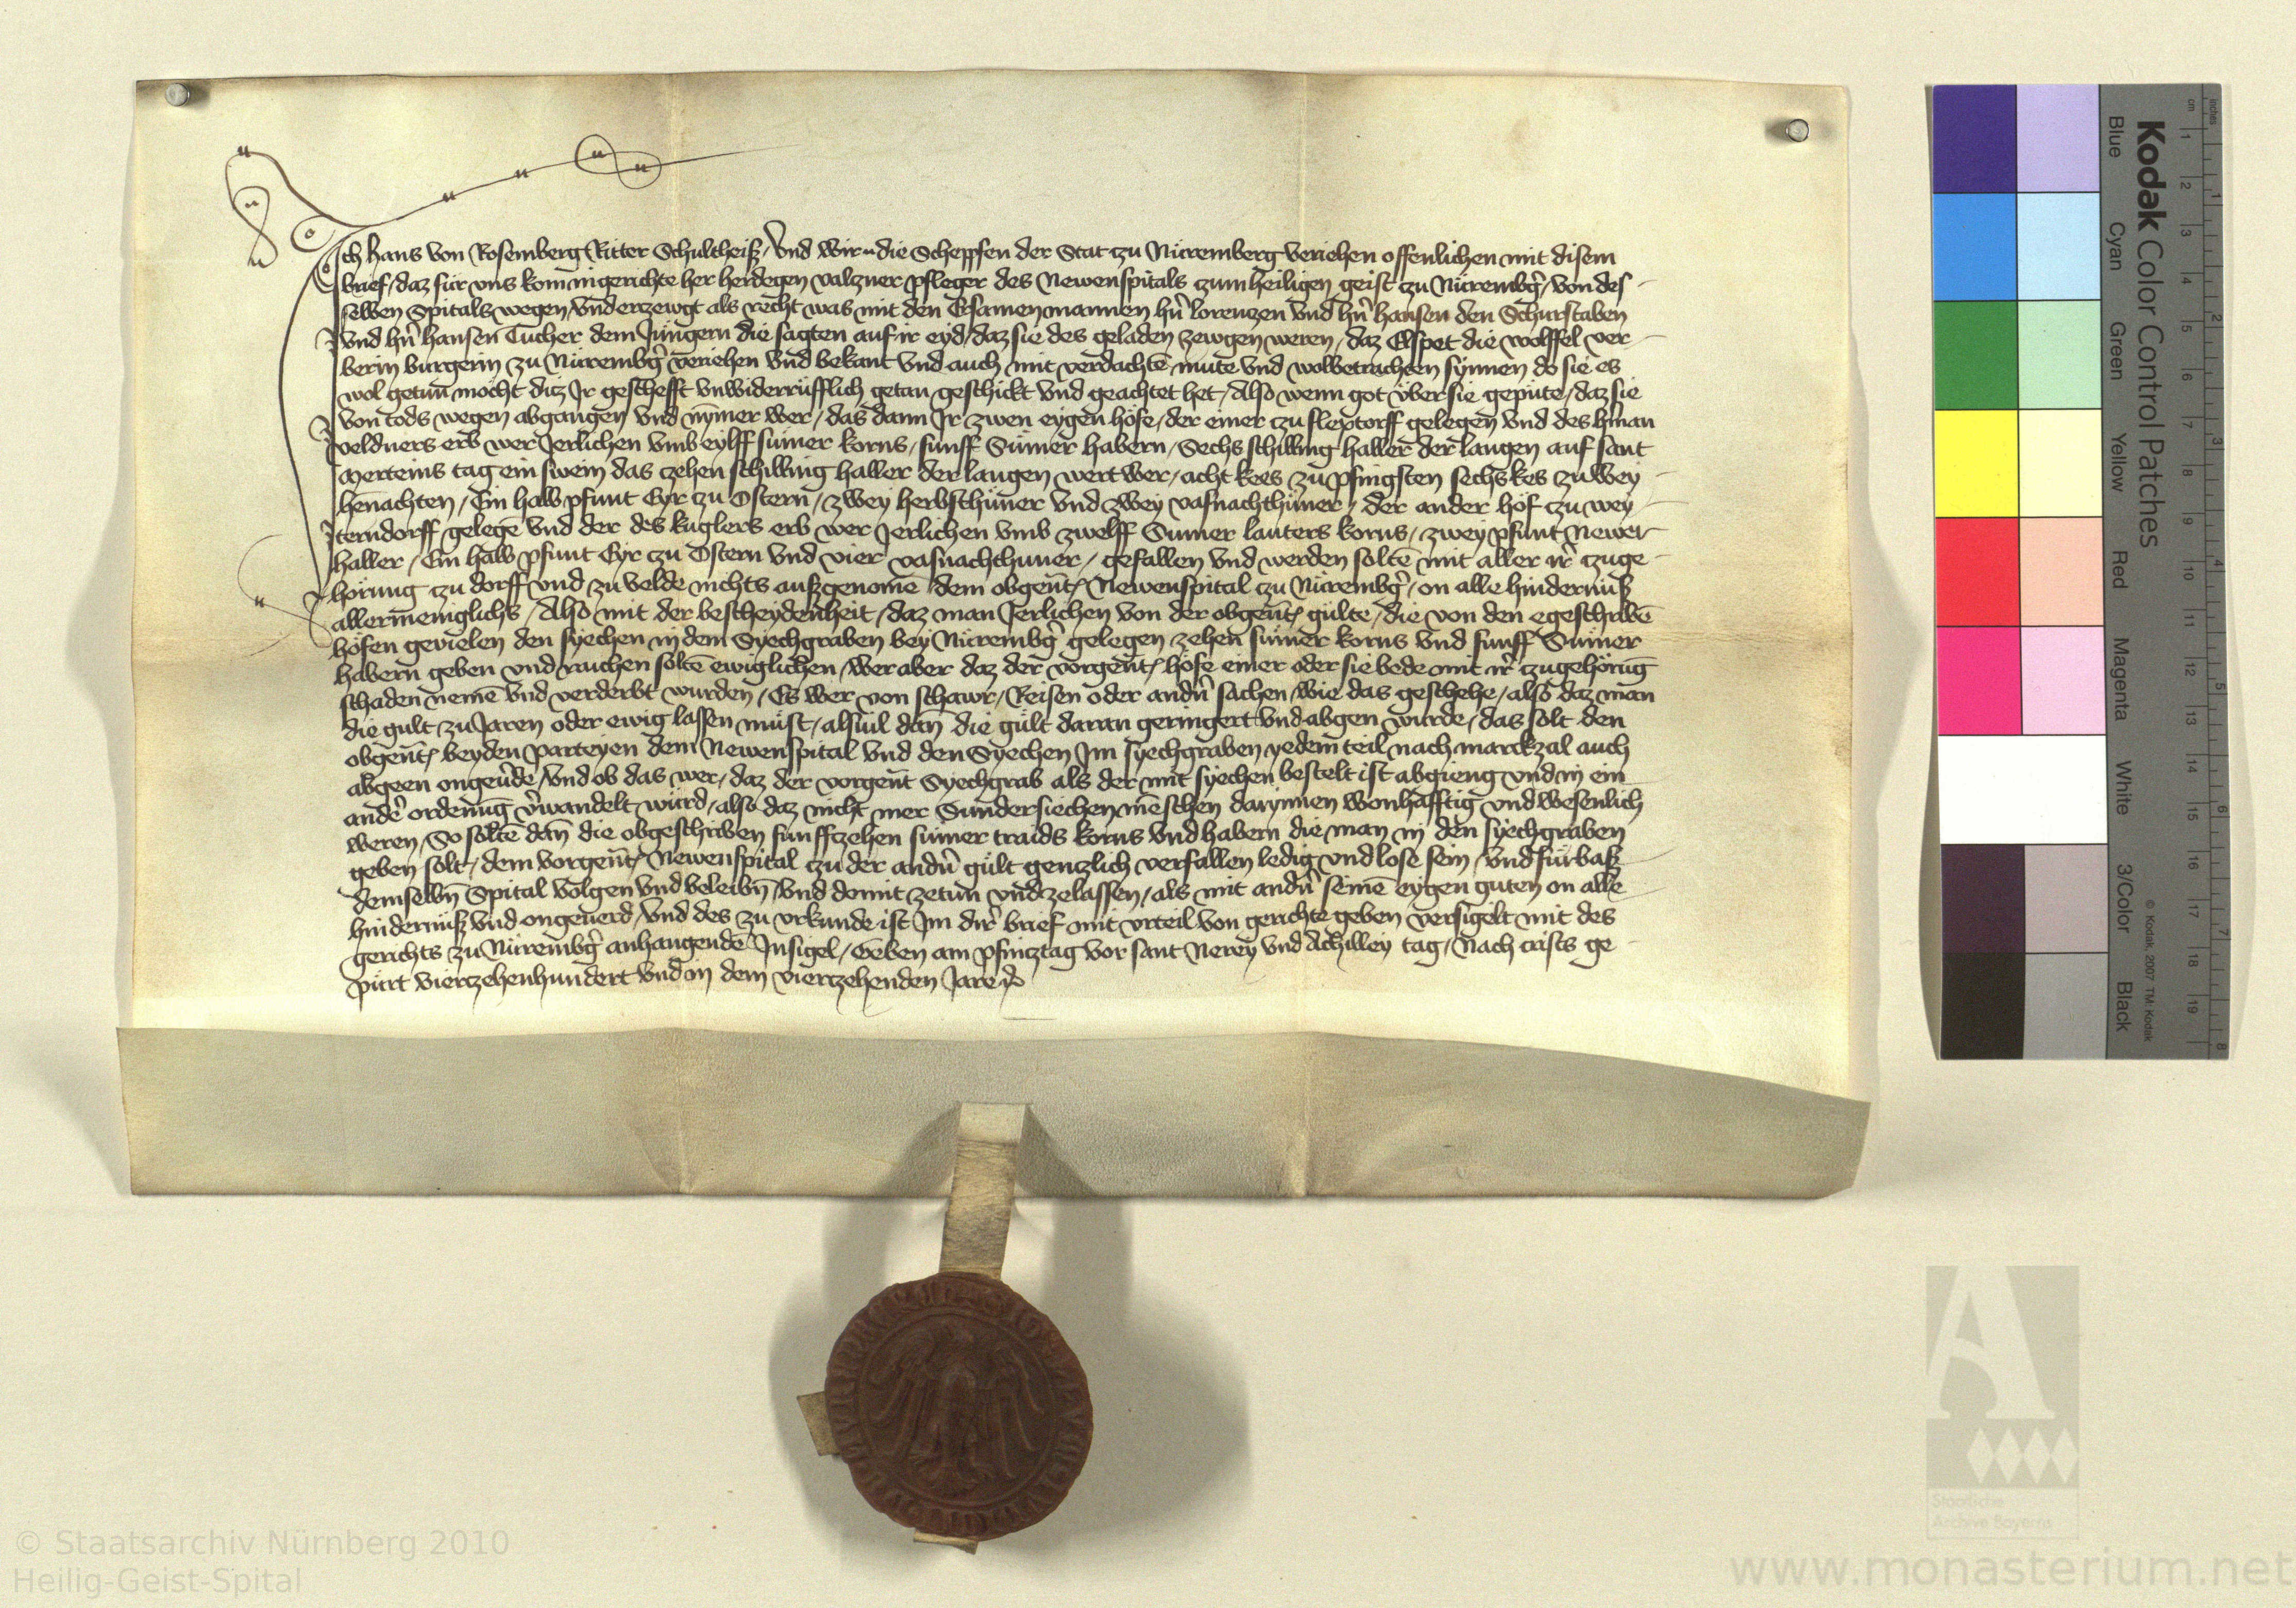 Ich Hans von Rosemberg Ritter Schultheiß / Vnd wir die Scheppfen der Stat zu Nüremberg veriehen offenlichen mit disem
brief / daz für vns kom in gerichte her herdegen valzner pfleger des Newenspitals zum heiligen geist zu Nürembg̃ / von des
selben Spitals wegen / vnd erzewgt als recht was mit den Ersamen mannen hñ lorenczen vnd hñ hansen den Schurstaben
vnd hñ hansen Tucher dem Jüngern die sagten auf ir eyd / daz sie des geladen zewgen weren / daz Elspet die wolffel ver
berin burgerin zu Nürembg̃ veriehen vnd bekant vnd auch mit verdachtē mute vnd wolbetrachten synnen do sie es
wol getun mocht daz Ir geschefft vnwiderrüfflich getan geschickt vnd geachtet het / Also wenn got über sie gepüte / daz sie
von tods wegen abgangen vnd nym̄er wer / das dann Ir zwen eygen höfe / der einer zu flextorff gelegen vnd des hman
veldners erb wer Jerlichen vmb eylff sümer korns / fünff Sümer habern / Sechs schilling haller der langen auf sant
Merteins tag ein swein das czehen schilling haller der langen wert wer / acht kees zu pfingsten sechs kes zu wey
henachten / Ein halb pfunt Eyr zu Ostern / zwey herbsthüner vnd zwey vasnachthüner / der ander hof zu wey
terndorff gelegē vnd der des kuglers erb wer Jerlichen vmb zwelff Sumer lauters korns / zwey pfunt Newer
haller / Ein halb pfunt Eyr zu Ostern vnd vier vasnachthuner / gefallen vnd werden soltē mit aller ir̃ czuge
hörung zu dorff vnd zu velde nichts außgenomē dem obgen̄t Newenspital zu Nürembg̃ / on alle hindernüß
allermeniglichs / Also mit der bescheydenheit / daz man Jerlichen von der obgen̄t gülte / die von den egeschribē
höfen gevielen den syechen in dem Syechgraben bey Nürembg̃ gelegen zehen sümer korns vnd fünff Sümer
habern geben vnd raichen soltē ewiglichen / Wer aber daz der vorgen̄t höfe einer oder sie bede mit ir̃ zugehörūg
schaden nemē vnd verderbt wurden / Es wer von schawr / Reisen oder andñ sachen / wie das geschehe / also daz man
die gult zu Jaren oder ewig lassen müst / alsuil dañ die gült daran geringert vnd abgen würde / das solt den
obgen̄t beyden parteyen dem Newenspital vnd den Syechen Im syechgraben yedem teil nach marckzal auch
abgeen ongeu̇de / Vnd ob das wer / daz der vorgen̄t Syechgrab als der mit syechen bestelt ist abgieng vnd in ein
ander̃ ordenūg v̇wandelt würd / also daz nicht mer Sundersiechen meschen darynnen wonhafftig vnd wesenlich
weren / So soltē dañ die obgeschriben fünffczehen sümer traids korns vnd habern die man in den syechgraben
geben solt / dem vorgen̄t Newenspital czu der andñ gült genczlich verfallen ledig vnd lose sein / vnd fürbaß
demselbñ Spital volgen vnd beleibñ / vnd domit zetun vnd zelassen / als mit andñ seinē eygen guten on alle
hindernüß vnd ongeuerd / Vnd des zu vrkunde ist Im dir̃ brief mit vrteil von gerichte geben versigelt mit des
gerichts zu Nürembg̃ anhangendē Insigel / Geben am pfincztag vor sant Nerey vnd Achilley tag / Nach crists ge
pürt vierczehenhundert vnd in dem vierczehenden Jare
Kodak Color Control Patches
Blue
Cyan
Green
Yellow
Red
Magenta
White
3/Color
Black
© Kodak, 2007 TM: Kodak
cm
inches
1 2 3 4 5 6 7 8 9 10 11 12 13 14 15 16 17 18 19
1 2 3 4 5 6 7 8
Staatliche
Archive Bayerns
© Staatsarchiv Nürnberg 2010
Heilig-Geist-Spital
www.monasterium.net